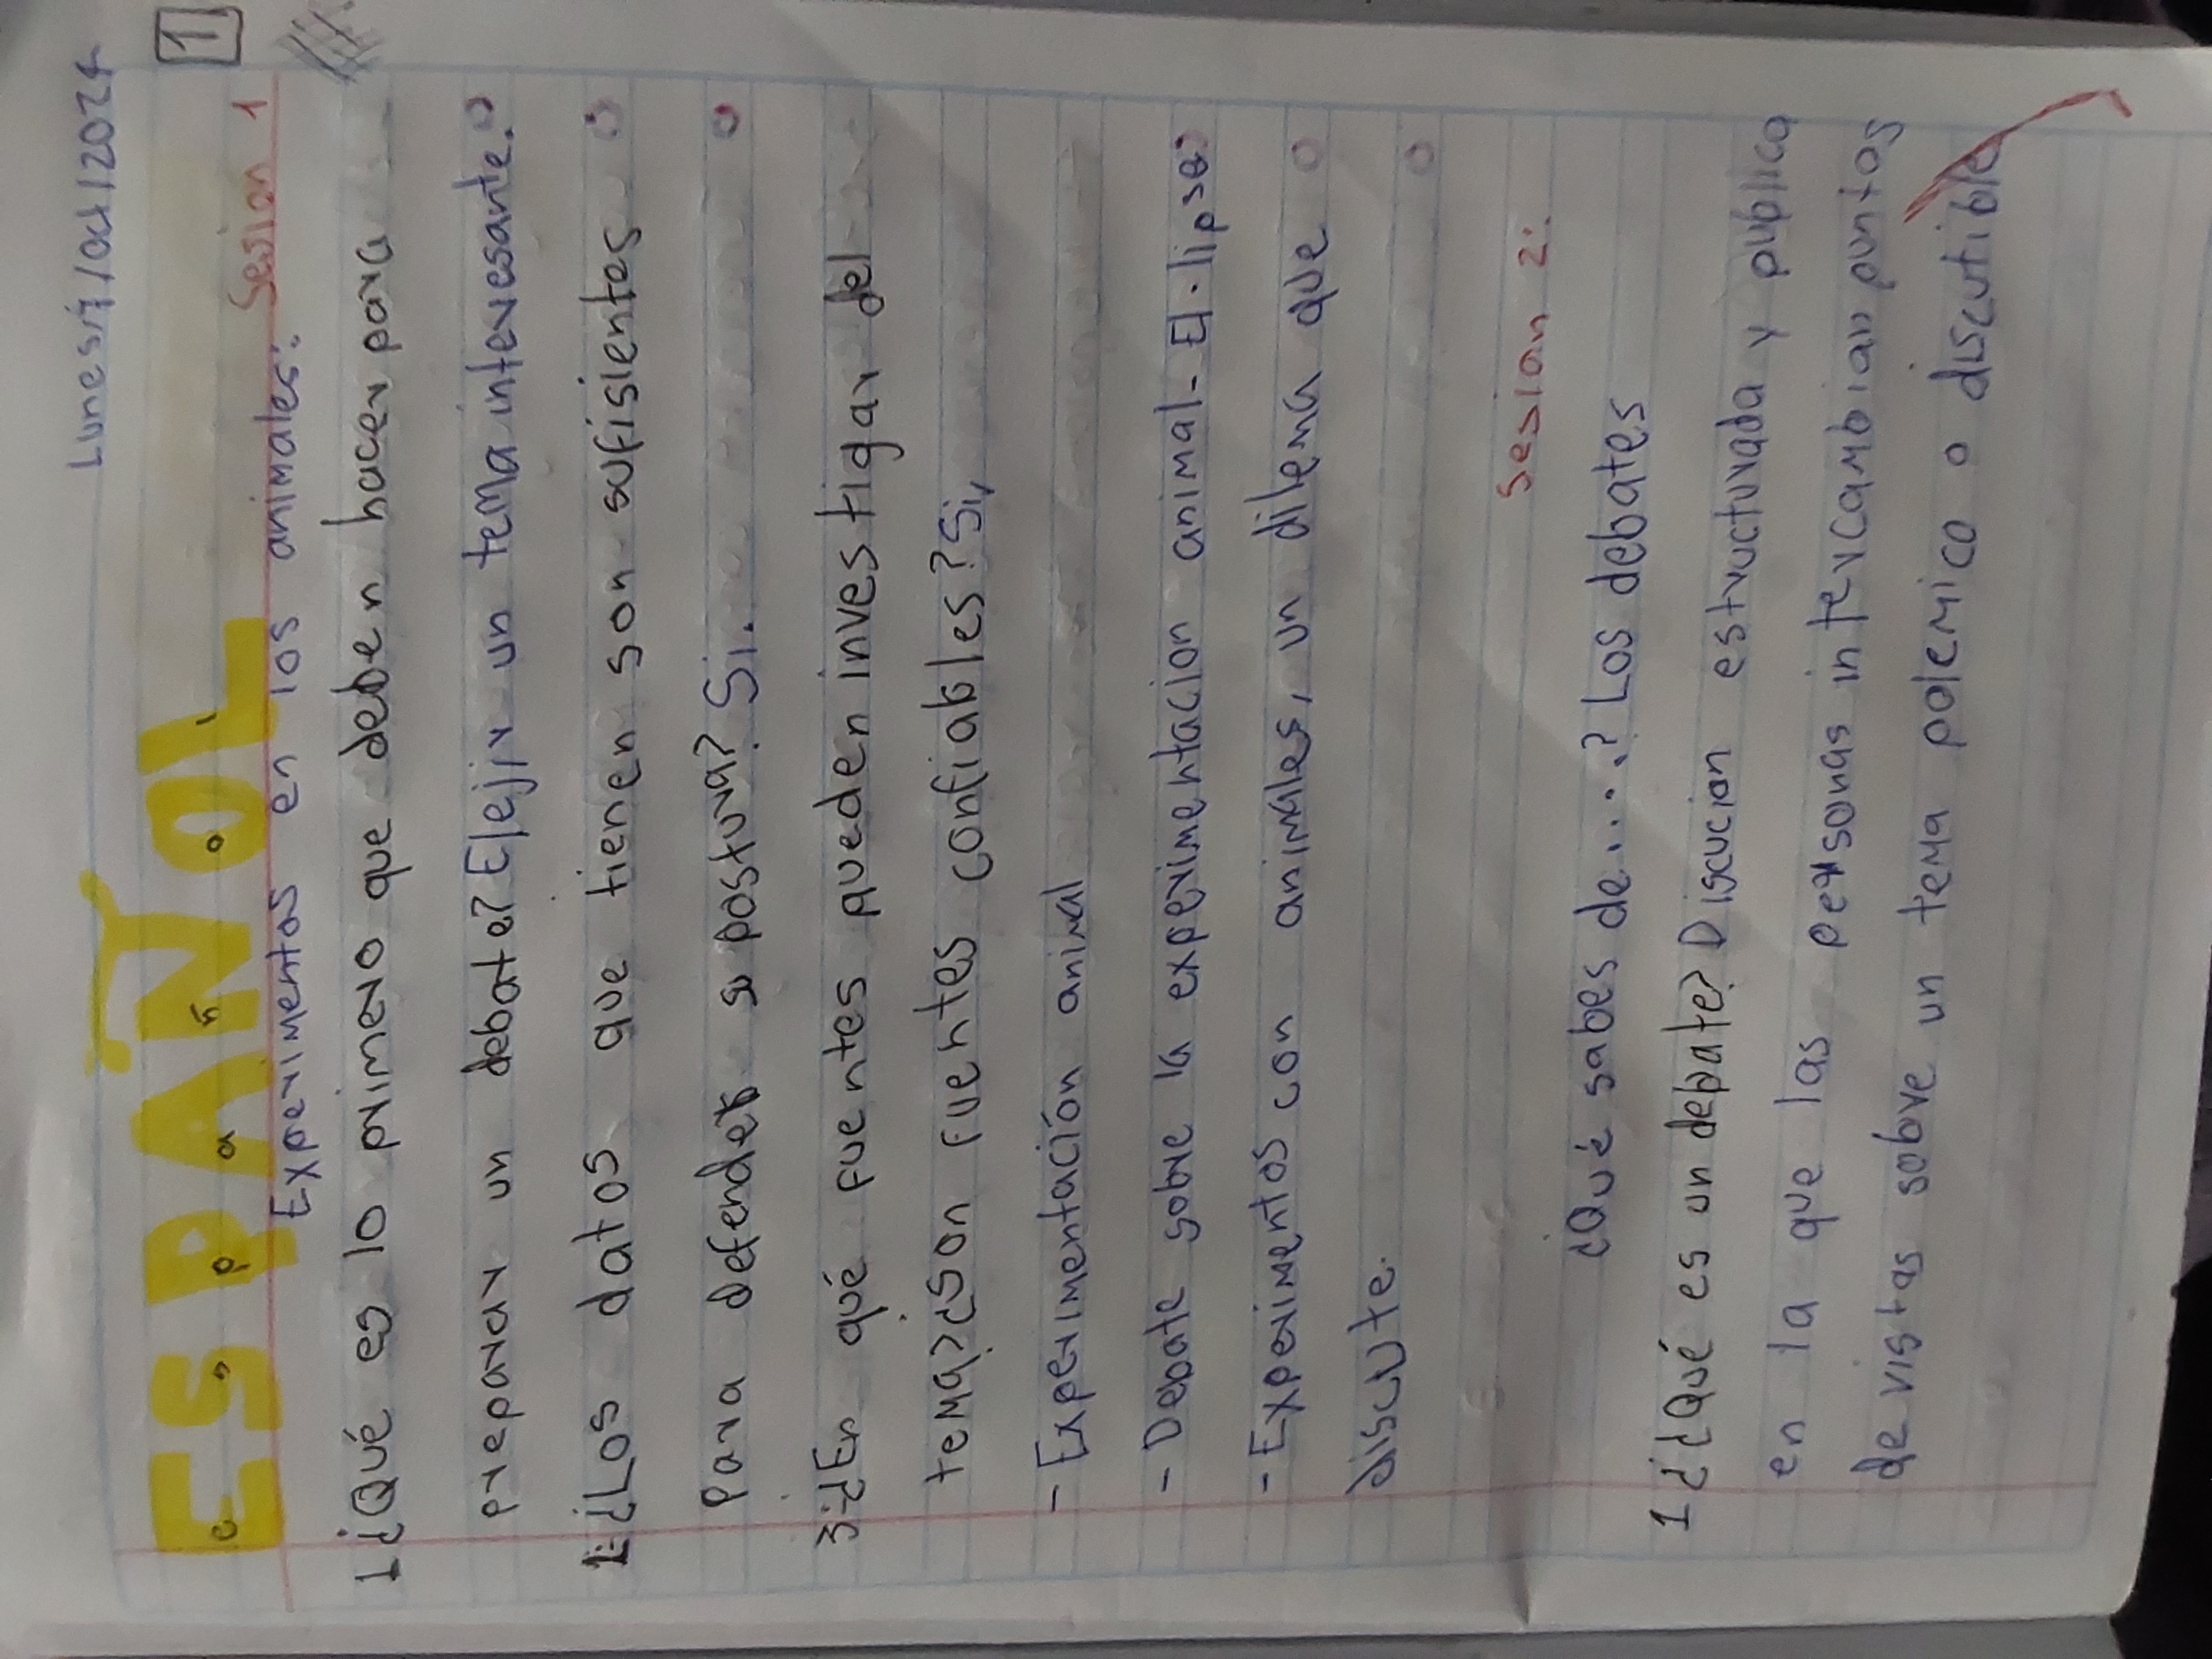 Lunes/7/oct/2024
1
ESPAÑOL
español
Sesion 1
Experimentos en los animales:
1¿Qué es lo primero que deben hacer para
preparar un debate? Elejir un tema interesante.
¿Los datos que tienen son sufisientes
Para defender su postura? Si.
3:¿En qué fuentes pueden investigar del
tema?¿Son fuentes confiables? Si,
- Experimentación animal
- Debate sobre la experimentacion animal - El.lipse
- Experimentos con animales, un dilema que
discute.
Sesion 2:
¿Qué sabes de....? Los debates
1 ¿¿Qué es un debate? Discucion estructurada y publica
en la que las personas intercambian puntos
de vistas sobre un tema polemico o discutible